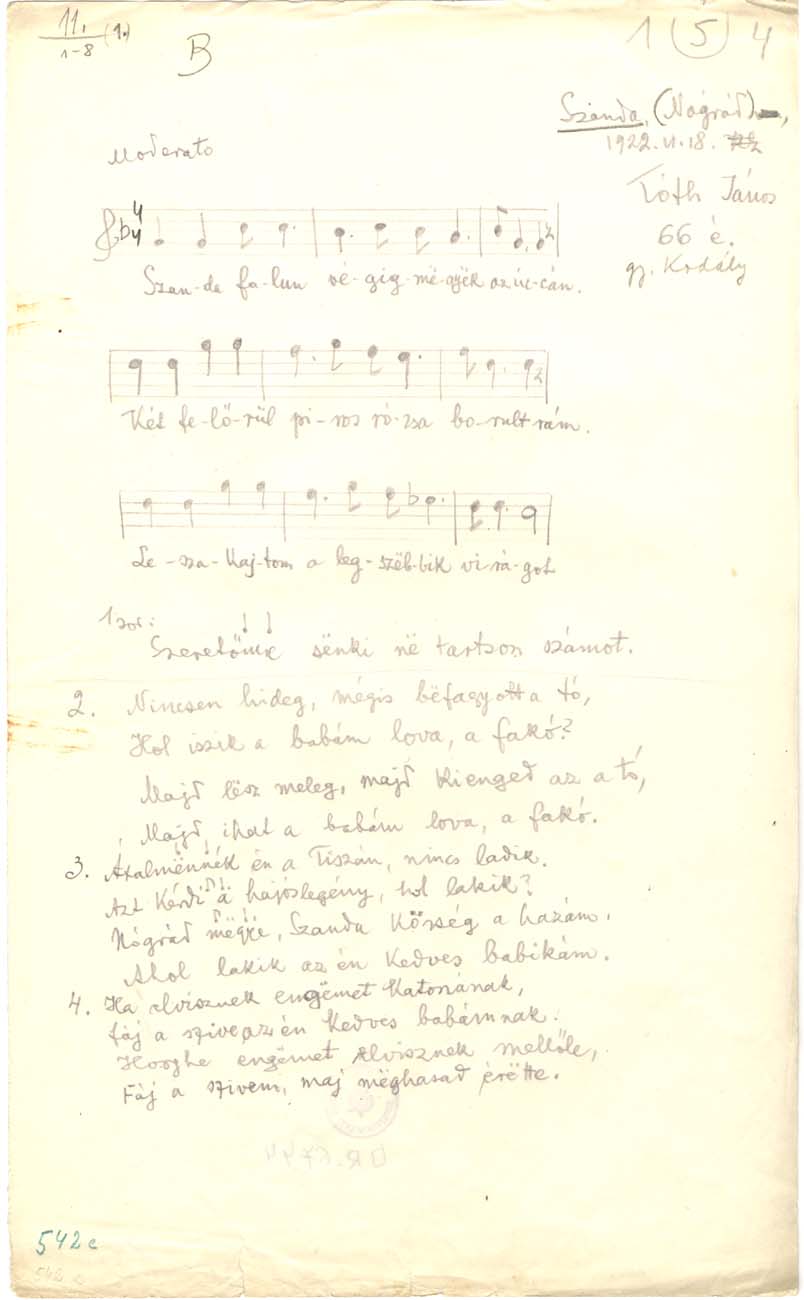 11.
1-8
(1.)
B
1 (5) 4
Szanda, (Nógrád),
1922. VI. 18.
Moderato
Tóth János
66 é.
gy. Kodály
4
4
Szan-da fa-lun vé-gig-më-gyëk az úc-cán.
Két fe-lő-rül pi-ros ró-zsa bo-rult rám.
Le-sza-kaj-tom a leg-szëb-bik vi-rá-got
1 sor:
Szeretőmre sënki në tartson számot.
2. Nincsen hideg, mégis bëfagyott a tó,
Hol iszik a babám lova, a fakó?
Majd lësz meleg, majd kienged az a tó,
Majd ihat a babám lova, a fakó.
3. Átalmënnék én a Tiszán, nincs ladik.
Azt kérdi a hajóslegény, hol lakik?
Nógrád mëgye, Szanda község a hazám.
Ahol lakik az én kedves babikám.
4. Ha elvisznek engëmet katonának,
fáj a szive az én kedves babámnak.
Hogyhe engëmet elvisznek mellőle,
Fáj a szivem, maj mëghasad érëtte.
542 c
542 c